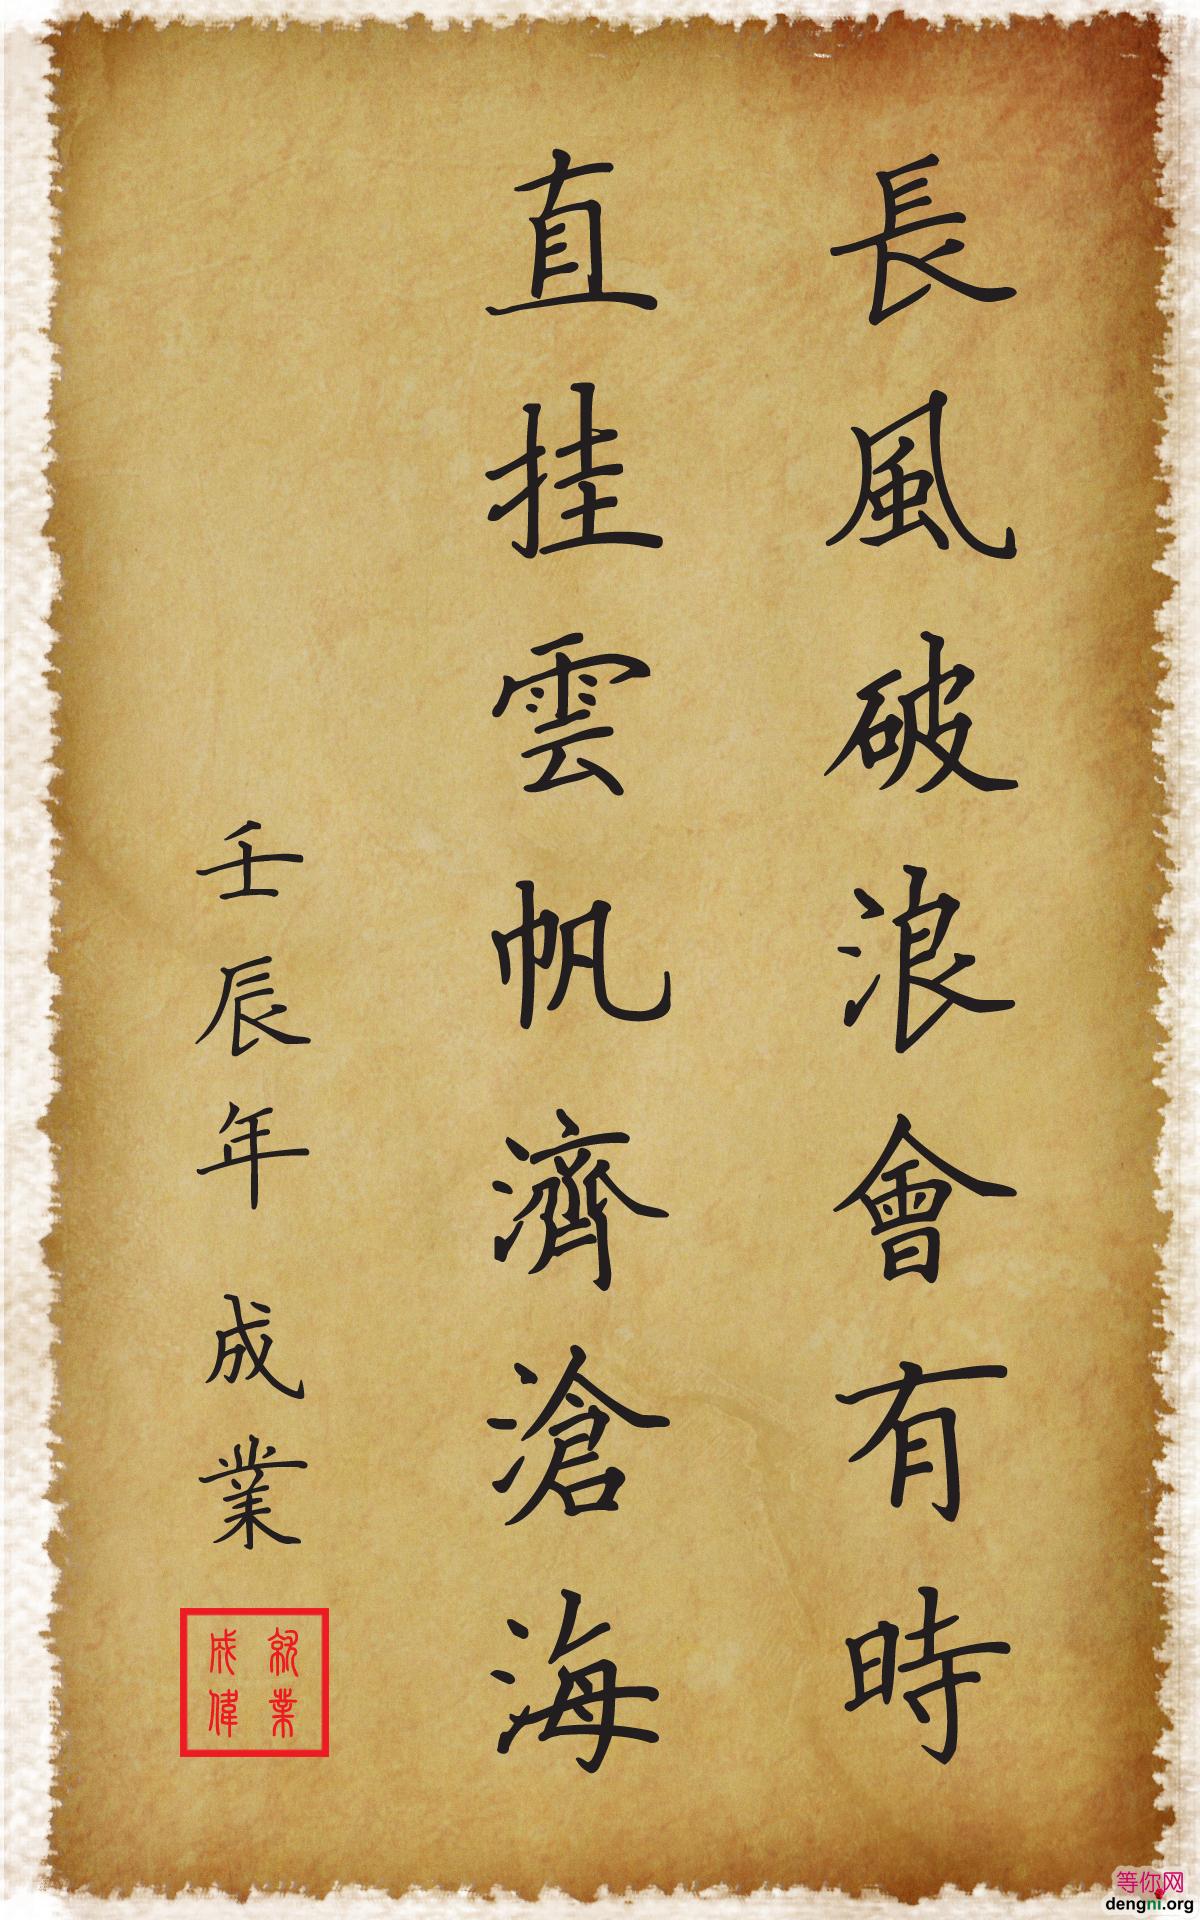 長風破浪會有時
直挂雲帆濟滄海
壬辰年 成業
就業
成偉
等你网
dengni.org